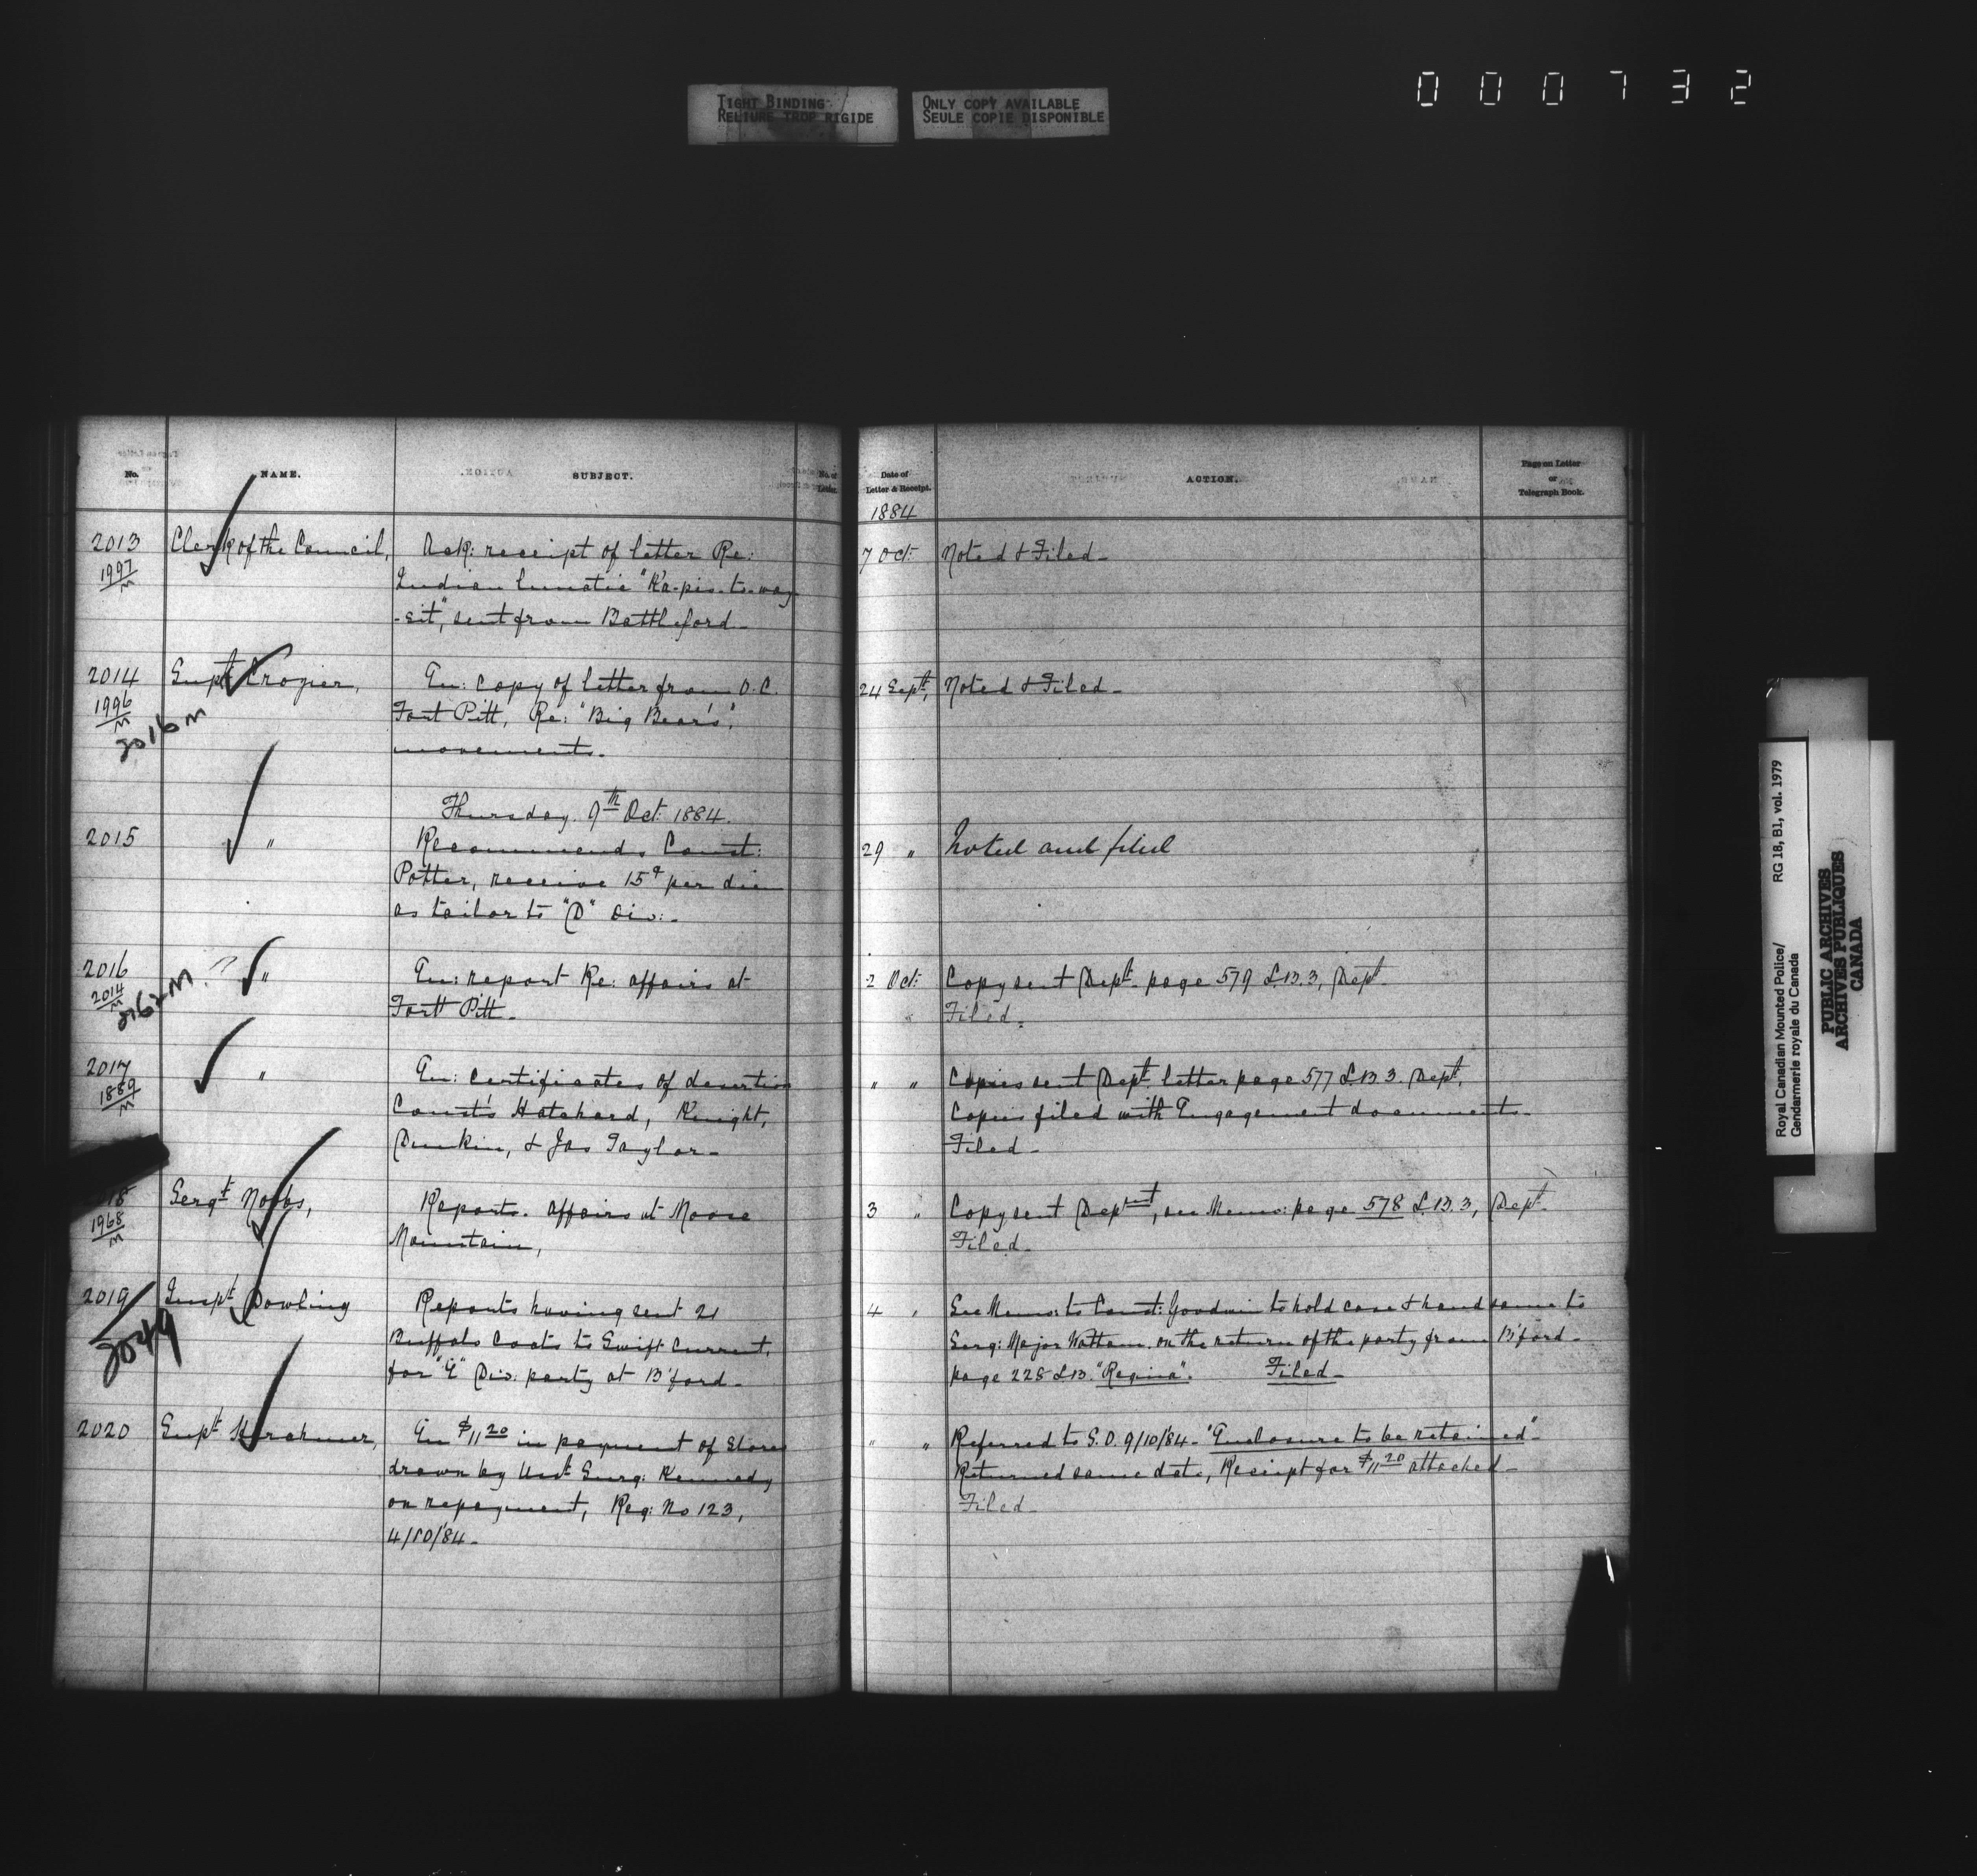 TIGHT BINDING
RELIURE TROP RIGIDE
ONLY COPY AVAILABLE
SEULE COPIE DISPONIBLE
000732
No.
NAME.
SUBJECT.
No. of
Letter.
2013
1997
M
Clerk of the Council,
Ack: receipt of letter Re:
Indian lunatic "Ka-pis-to-way
-sit", sent from Battleford-
2014
1996
M
2016 M
Supt. Crozier,
En: copy of letter from O.C.
Fort Pitt, Re: "Big Bear's",
movements-
Thursday. 9th Oct: 1884.
2015
"
Recommends Const:
Potter, receive 15¢ per diem
as tailor to "D" Div:-
2016
2014
M
2162 M ?
"
En: report Re: affairs at
Fort Pitt-
2017
1889
M
"
En: Certificates of desertion
Const's Hatchard, Knight,
Dunkin, & Jas Taylor-
2018
1968
M
Sergt. Nobbs,
Reports. affairs at Moose
Mountain,
2019
2049
Inspt. Dowling
Reports having sent 21
Buffalo Coats to Swift Current,
for "E" Div: party at B'ford-
2020
Supt. Herchmer,
En $11 20 in payment of Stores
drawn by Asst Surg: Kennedy
on repayment, Req: No 123,
4/10/84-
Date of
Letter & Receipt.
ACTION.
Page on Letter
or
Telegraph Book.
1884
7 Oct: Noted & Filed-
24 Sept. Noted & Filed-
29 " Noted and filed
2 Oct: Copy sent Dept. page 579 L.B. 3, Dept.
" Filed.
" " Copies sent Dept. letter page 577 L.B. 3. Dept.
Copies filed with Engagement documents-
Filed-
3 " Copy sent Department, see Memo: page 578 L.B. 3, Dept.
Filed-
4 " See Memo: to Const: Goodwin to hold case & hand same to
Serg: Major Wattam. on the return of the party from B'ford-
page 228 L.B. "Regina". Filed-
" " Referred to S.O. 9/10/84- "Enclosure to be retained"
Returned same date, Receipt for $11 20 attached-
Filed-
Royal Canadian Mounted Police/
Gendarmerie royale du Canada
RG 18, B1, vol. 1979
PUBLIC ARCHIVES
ARCHIVES PUBLIQUES
CANADA